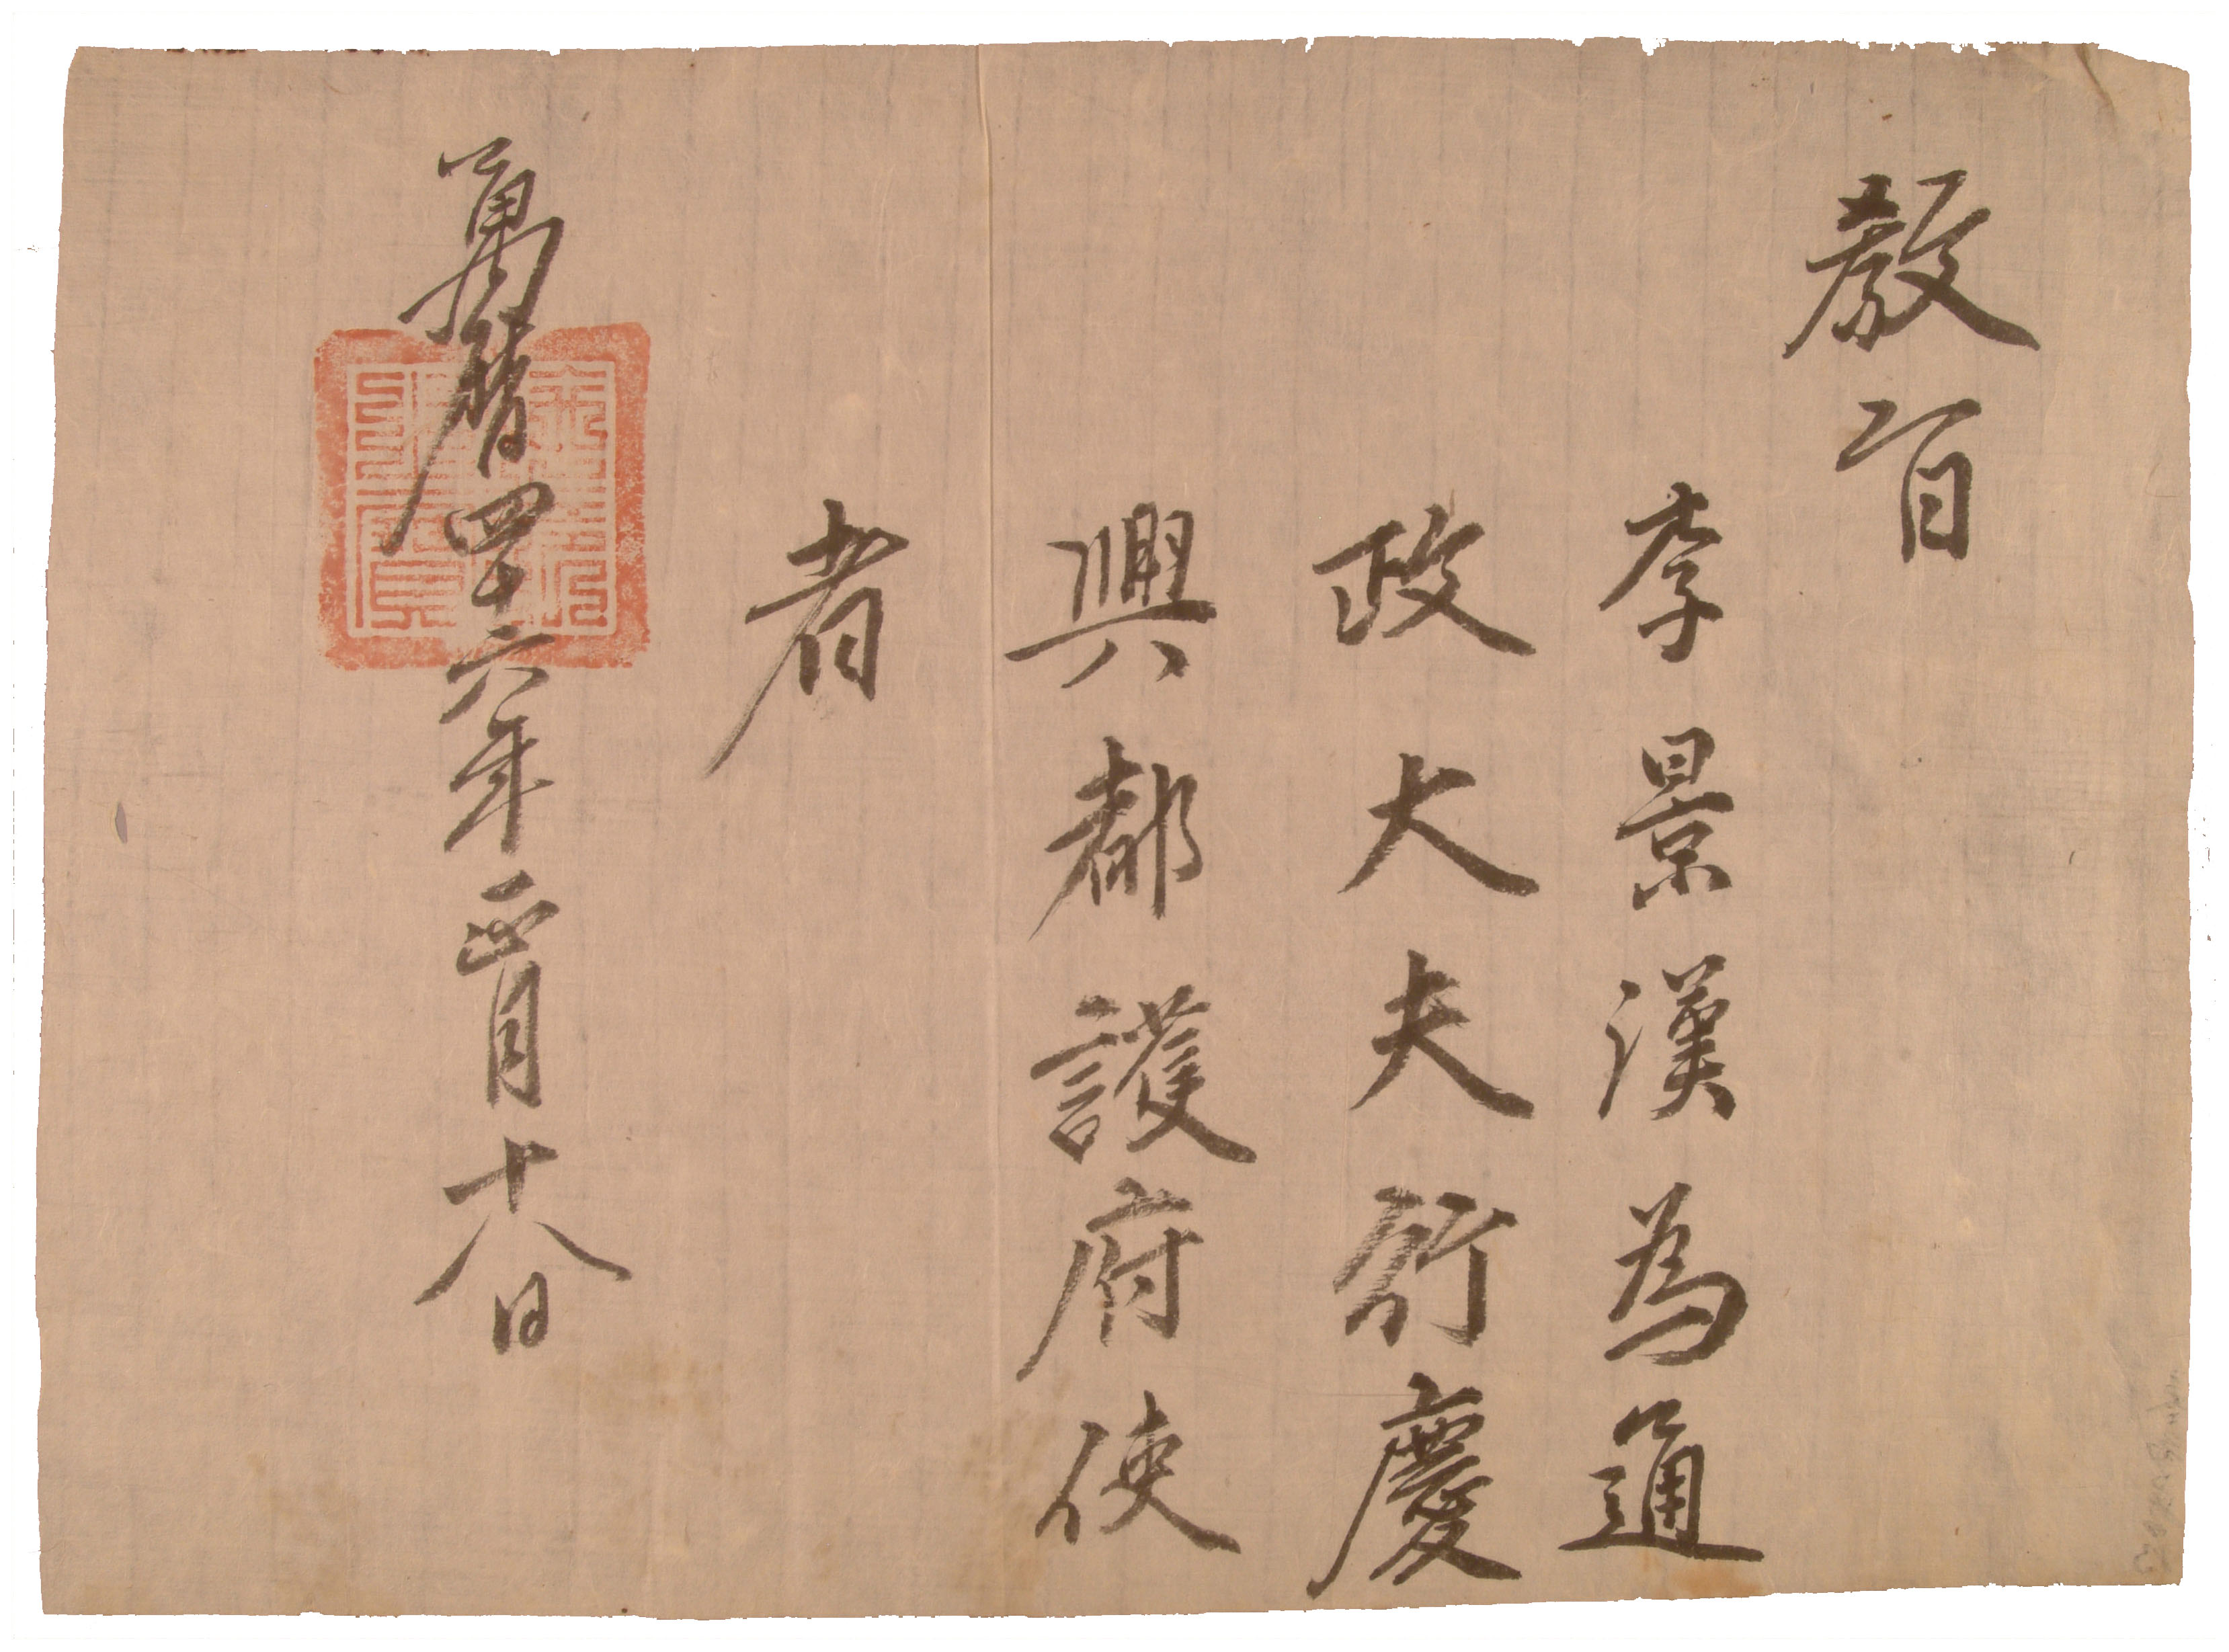 教旨
李景漢為通
政大夫行慶
興都護府使
者
萬曆四十六年正月十八日